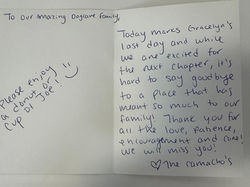 To Our Amazing Daycare Family,
Please enjoy
a donut or
cup
of joe!
Today marks Gracelyn's
last day and while
we are excited for
the next chapter, it's
hard to say goodbye
to a place that has
meant so much to our
family! Thank you for
all the love, patience,
encouragement and care!
We will miss you!
The Camacho's